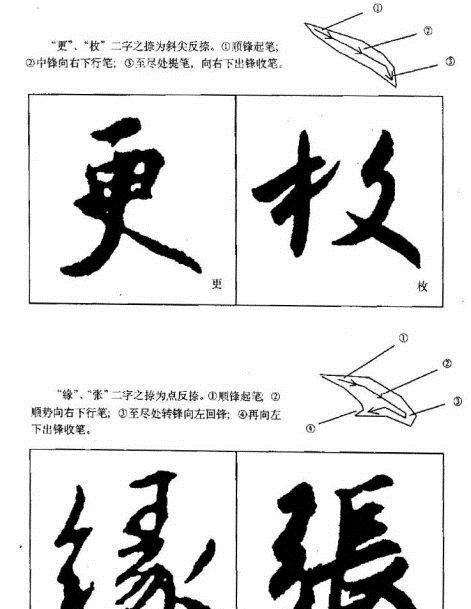 “更”、“枚”二字之捺为斜尖反捺。①顺锋起笔;
②中锋向右下行笔; ③至尽处提笔, 向右下出锋收笔。
①
②
③
更 枚
更 枚
“缘”、“张”二字之捺为点反捺。①顺锋起笔 ②
顺势向右下行笔; ③至尽处转锋向左回锋; ④再向左
下出锋收笔。
①
②
③
④
缘 張